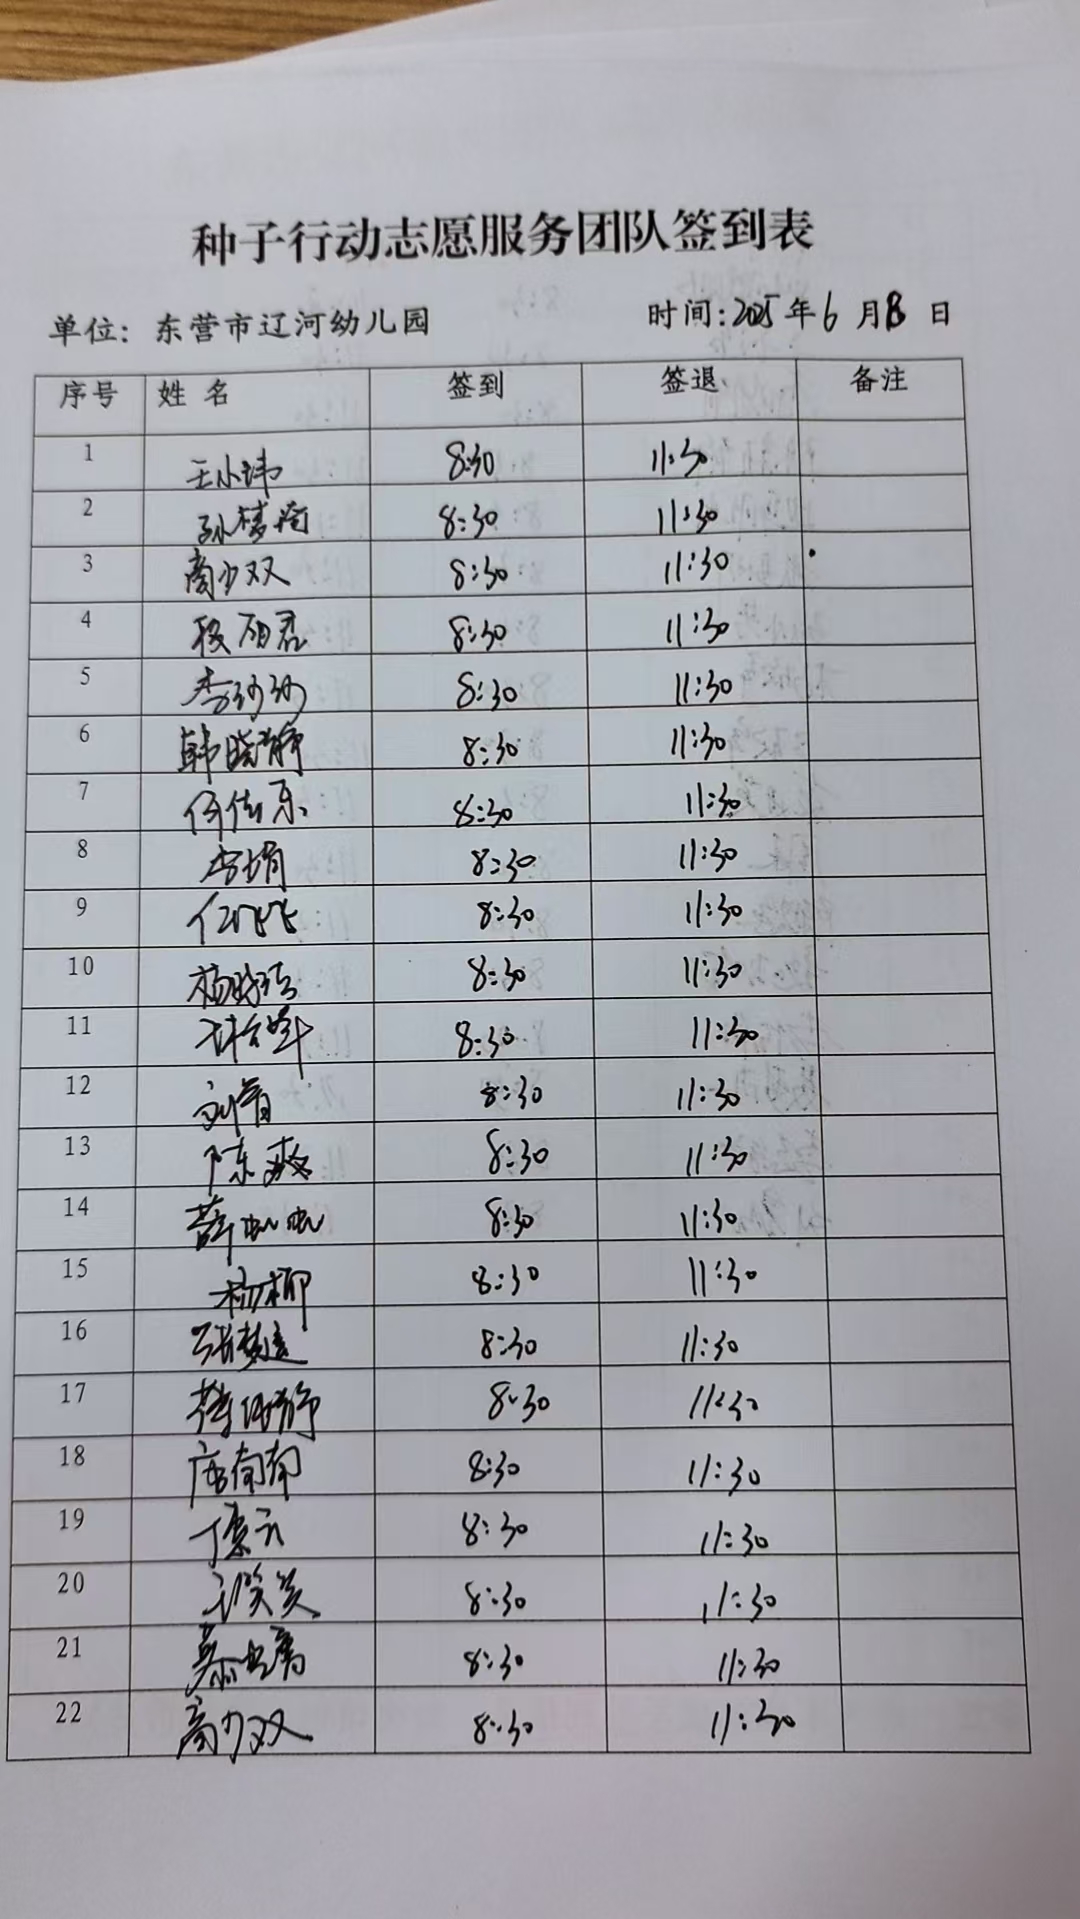 种子行动志愿服务团队签到表
单位：东营市辽河幼儿园 时间：2025年6月13日
序号 姓名 签到 签退 备注
1 王小玮 8:30 11:30
2 孙梦 8:30 11:30
3 商少双 8:30 11:30
4 段丽君 8:30 11:30
5 李沙沙 8:30 11:30
6 韩晓静 8:30 11:30
7 何佳乐 8:30 11:30
8 李娟 8:30 11:30
9 任飞飞 8:30 11:30
10 杨晓 8:30 11:30
11 8:30 11:30
12 刘 8:30 11:30
13 陈爽 8:30 11:30
14 薛虹虹 8:30 11:30
15 杨柳 8:30 11:30
16 张梦 8:30 11:30
17 静 8:30 11:30
18 唐南南 8:30 11:30
19 丁 8:30 11:30
20 笑笑 8:30 11:30
21 8:30 11:30
22 商少双 8:30 11:30